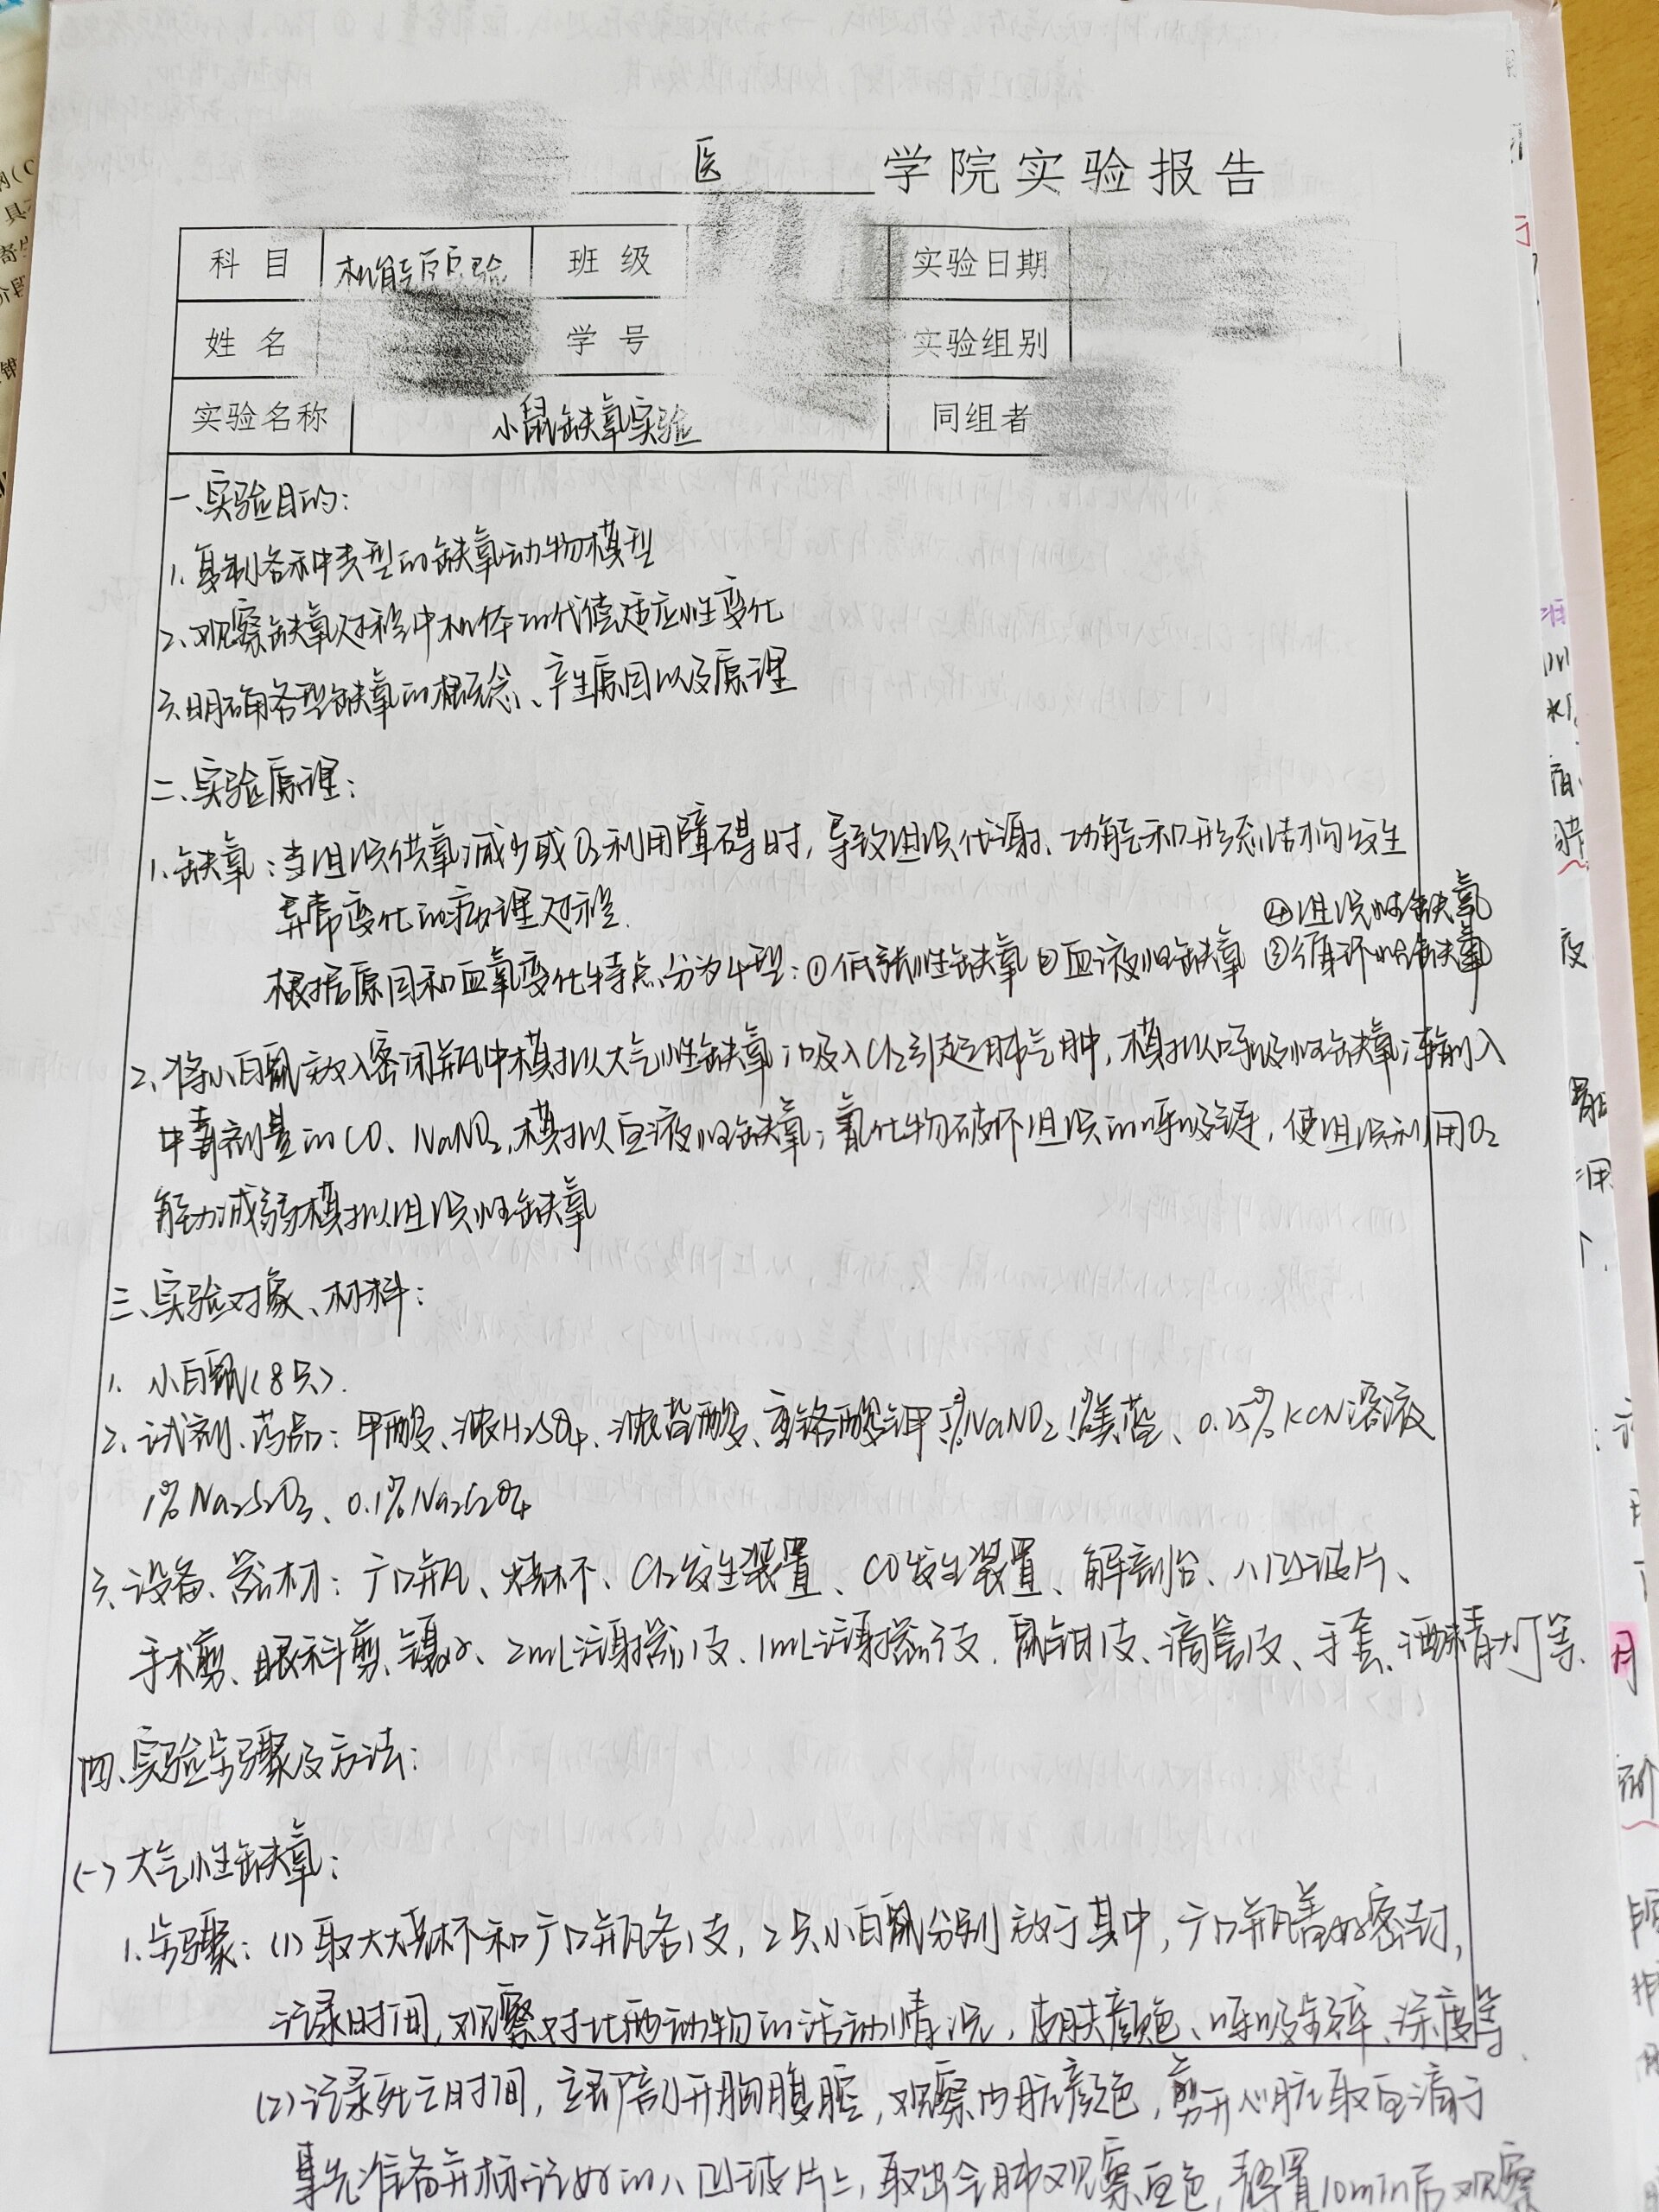 医 学院实验报告
科目 机能学实验 班级 实验日期
姓名 学号 实验组别
实验名称 小鼠缺氧实验 同组者
一、实验目的:
1、复制各种类型的缺氧动物模型
2、观察缺氧过程中机体的代偿适应性变化
3、明确各型缺氧的概念、产生原因以及原理
二、实验原理:
1、缺氧:当组织供氧减少或O₂利用障碍时,导致组织代谢、功能和形态结构发生
异常变化的病理过程.
④组织性缺氧
根据原因和血氧变化特点分为4型:①低张性缺氧②血液性缺氧 ③循环性缺氧
2、将小白鼠放入密闭瓶中模拟大气性缺氧;吸入Cl₂引起肺气肿,模拟呼吸性缺氧;输入
中毒剂量的CO、NaNO₂,模拟血液性缺氧;氰化物破坏组织的呼吸链,使组织利用O₂
能力减弱模拟组织性缺氧
三、实验对象、材料:
1、小白鼠(8只).
2、试剂、药品:甲酸、浓H₂SO₄、浓盐酸、重铬酸钾 5%NaNO₂ 1%美蓝、0.25%KCN溶液
1%Na₂S₂O₃、0.1%Na₂S₂O₄
3、设备、器材:广口瓶、烧杯、Cl₂发生装置、CO发生装置、解剖台、八凹玻片、
手术剪、眼科剪、镊子、2mL注射器1支、1mL注射器3支、鼠钳1支、滴管1支、手套、酒精灯等.
四、实验步骤及方法:
(一)大气性缺氧:
1、步骤:(1)取大烧杯和广口瓶各1支,2只小白鼠分别放于其中,广口瓶盖好密封,
记录时间,观察对比两动物的活动情况,皮肤颜色、呼吸频率、深度等、
(2)记录死亡时间,立即剖开胸腹腔,观察内脏颜色,剪开心脏取血滴于
事先准备并标记好的八凹玻片上,取出全肺观察血色,静置10min后观察